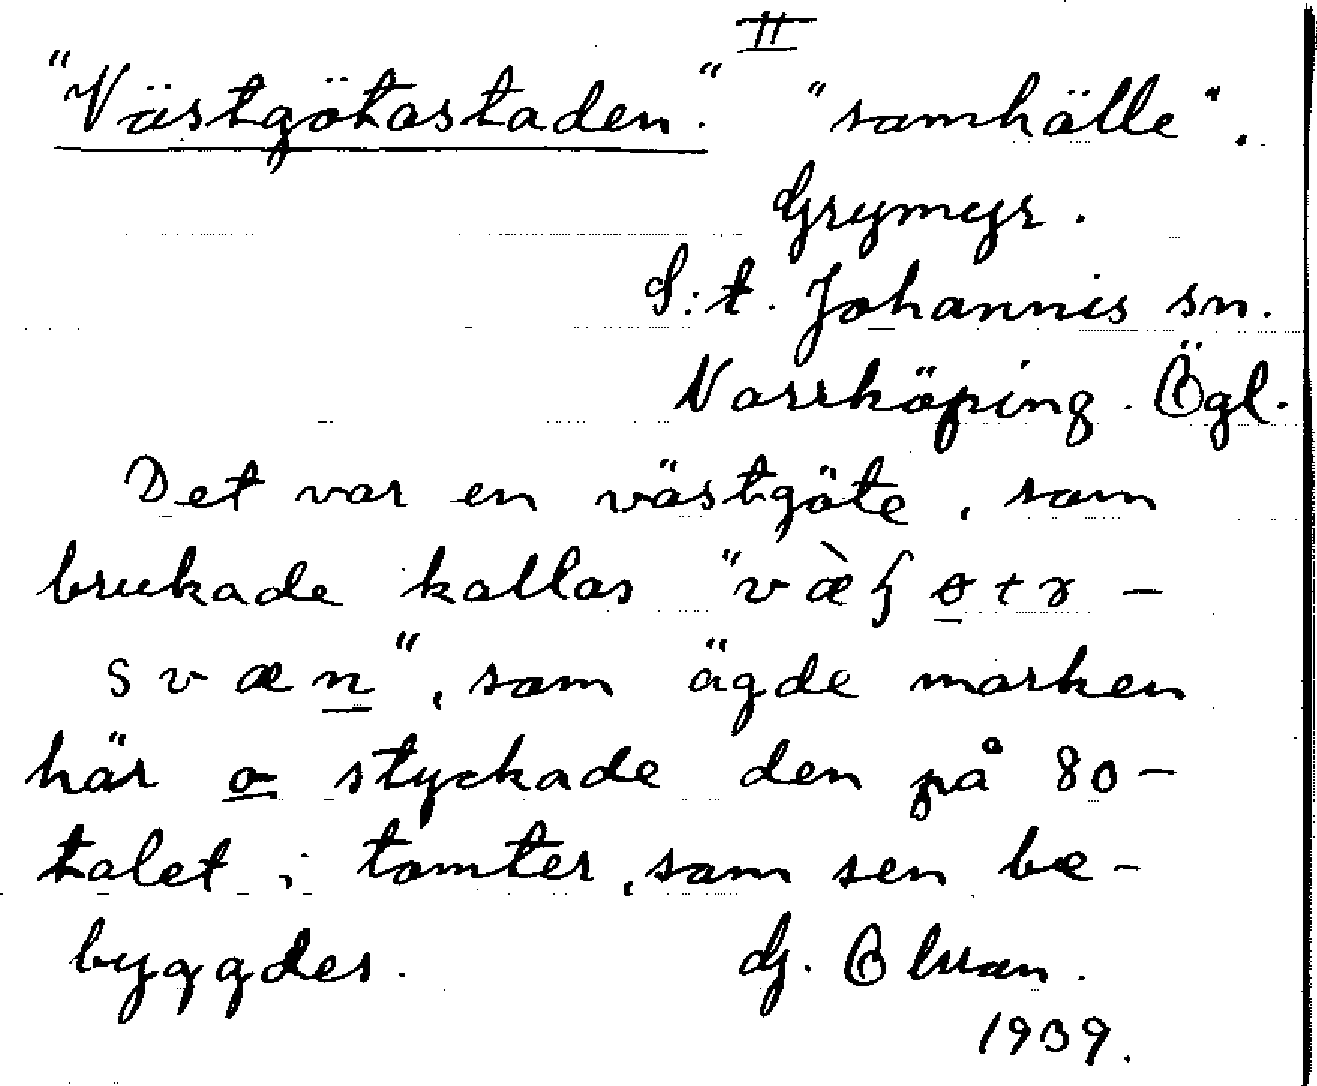 II
"Västgötastaden." "samhälle".
Grymyr.
S:t. Johannis sn.
Norrköping. Ögl.
Det var en västgöte, som
brukade kallas "
", som ägde marken
här o styckade den på 80-
talet i tomter, som sen be-
byggdes. G. Olsson.
1939.